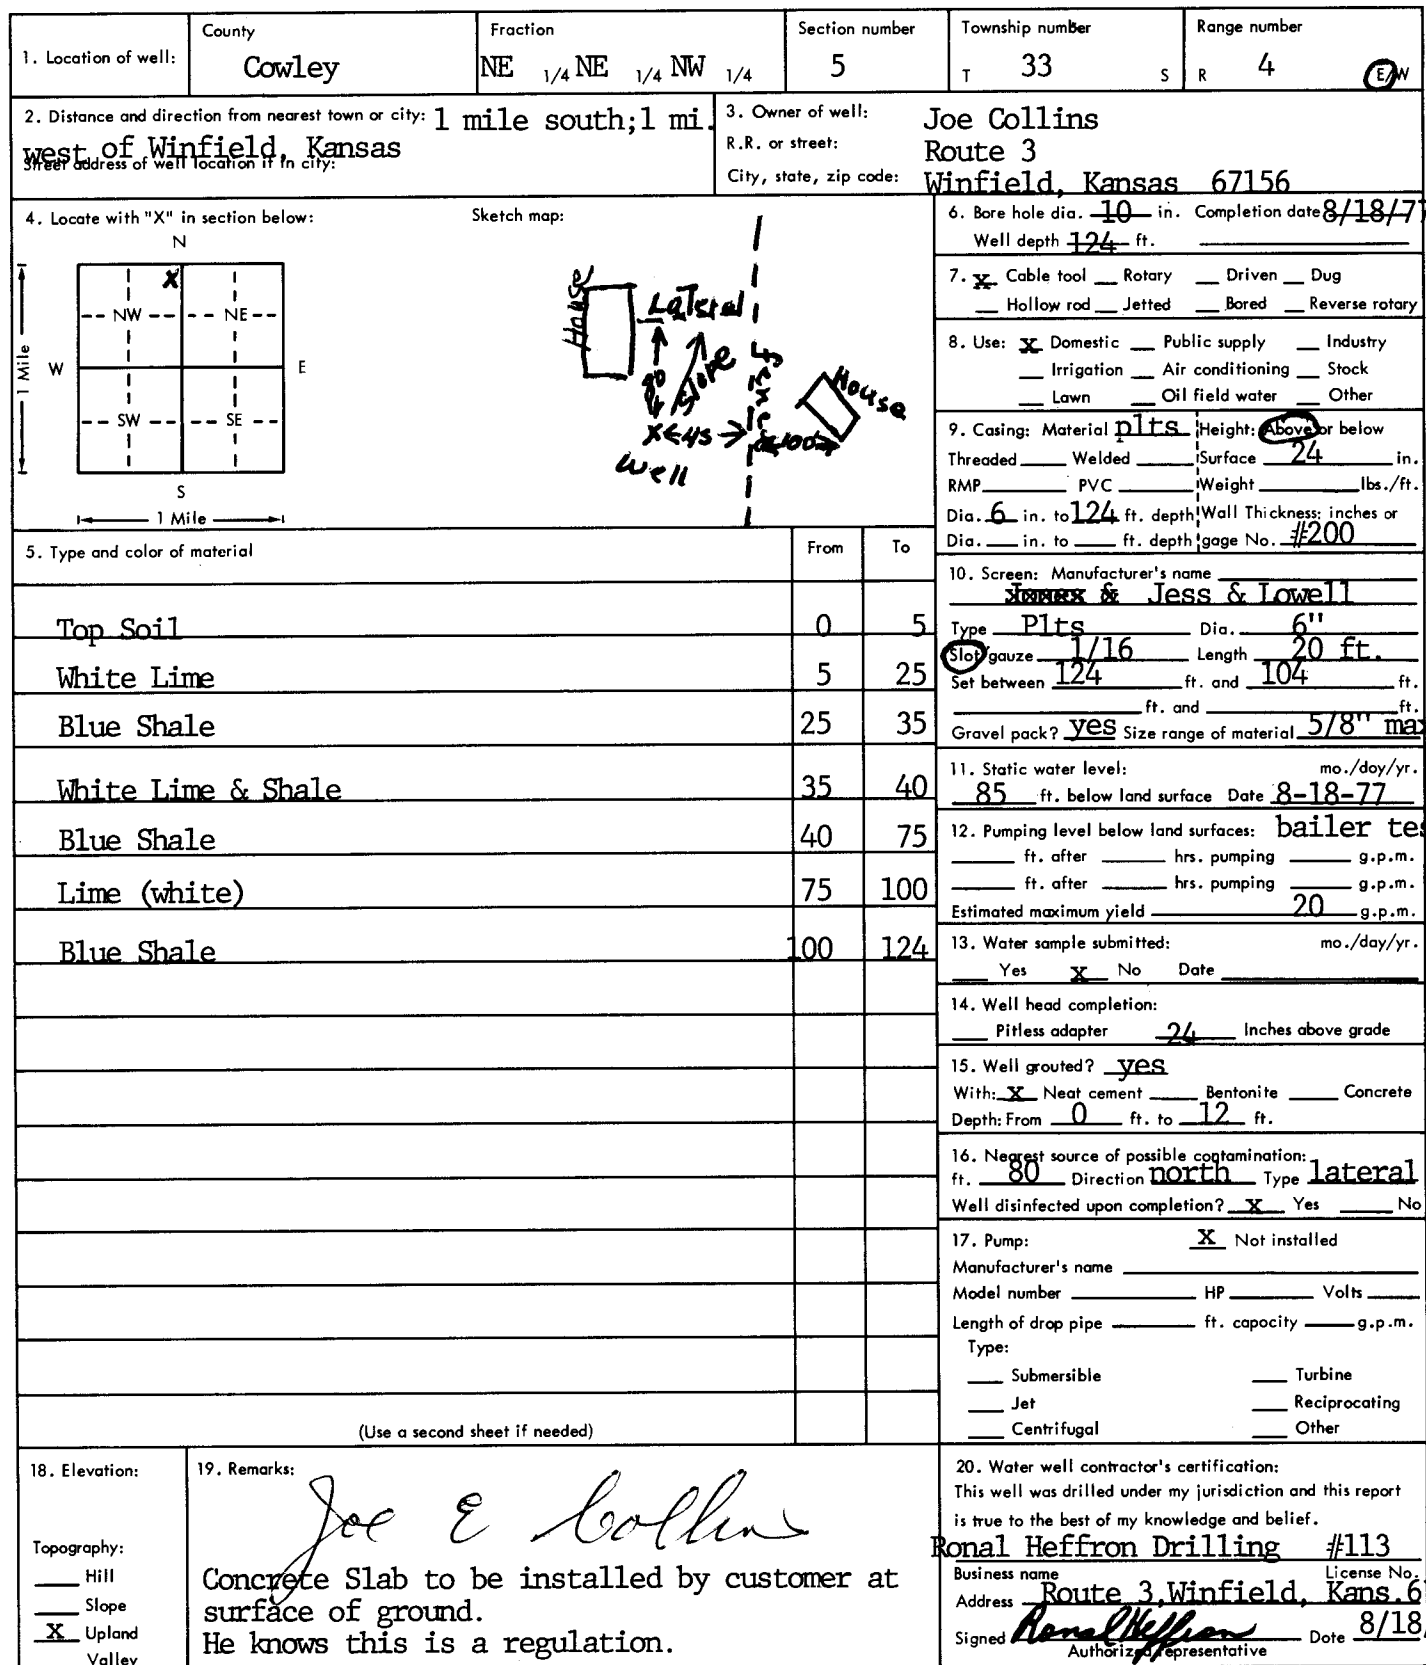 1. Location of well:
County
Cowley
Fraction
NE 1/4 NE 1/4 NW 1/4
Section number
5
Township number
T 33 S
Range number
R 4 E/W
2. Distance and direction from nearest town or city: 1 mile south;1 mi.
west of Winfield, Kansas
Street address of well location if in city:
3. Owner of well: Joe Collins
R.R. or street: Route 3
City, state, zip code: Winfield, Kansas 67156
4. Locate with "X" in section below:
N
X
NW NE
W E
SW SE
S
1 Mile
1 Mile
Sketch map:
House
Lateral
80
slope
fence
House
X 45
100
well
5. Type and color of material From To
Top Soil 0 5
White Lime 5 25
Blue Shale 25 35
White Lime & Shale 35 40
Blue Shale 40 75
Lime (white) 75 100
Blue Shale 100 124
(Use a second sheet if needed)
6. Bore hole dia. 10 in. Completion date 8/18/77
Well depth 124 ft.
7. X Cable tool Rotary Driven Dug
Hollow rod Jetted Bored Reverse rotary
8. Use: X Domestic Public supply Industry
Irrigation Air conditioning Stock
Lawn Oil field water Other
9. Casing: Material plts Height: Above or below
Threaded Welded Surface 24 in.
RMP PVC Weight lbs./ft.
Dia. 6 in. to 124 ft. depth Wall Thickness: inches or
Dia. in. to ft. depth gage No. #200
10. Screen: Manufacturer's name
Jess & Lowell
Type Plts Dia. 6"
Slot/gauze 1/16 Length 20 ft.
Set between 124 ft. and 104 ft.
ft. and ft.
Gravel pack? yes Size range of material 5/8" max
11. Static water level: mo./day/yr.
85 ft. below land surface Date 8-18-77
12. Pumping level below land surfaces: bailer tes
ft. after hrs. pumping g.p.m.
ft. after hrs. pumping g.p.m.
Estimated maximum yield 20 g.p.m.
13. Water sample submitted: mo./day/yr.
Yes X No Date
14. Well head completion:
Pitless adapter 24 Inches above grade
15. Well grouted? yes
With: X Neat cement Bentonite Concrete
Depth: From 0 ft. to 12 ft.
16. Nearest source of possible contamination:
ft. 80 Direction north Type lateral
Well disinfected upon completion? X Yes No
17. Pump: X Not installed
Manufacturer's name
Model number HP Volts
Length of drop pipe ft. capacity g.p.m.
Type:
Submersible Turbine
Jet Reciprocating
Centrifugal Other
18. Elevation:
Topography:
Hill
Slope
X Upland
Valley
19. Remarks:
Joe E Collins
Concrete Slab to be installed by customer at
surface of ground.
He knows this is a regulation.
20. Water well contractor's certification:
This well was drilled under my jurisdiction and this report
is true to the best of my knowledge and belief.
Ronal Heffron Drilling #113
Business name License No.
Address Route 3,Winfield, Kans.6
Signed Ronal Heffron Date 8/18/
Authorized representative